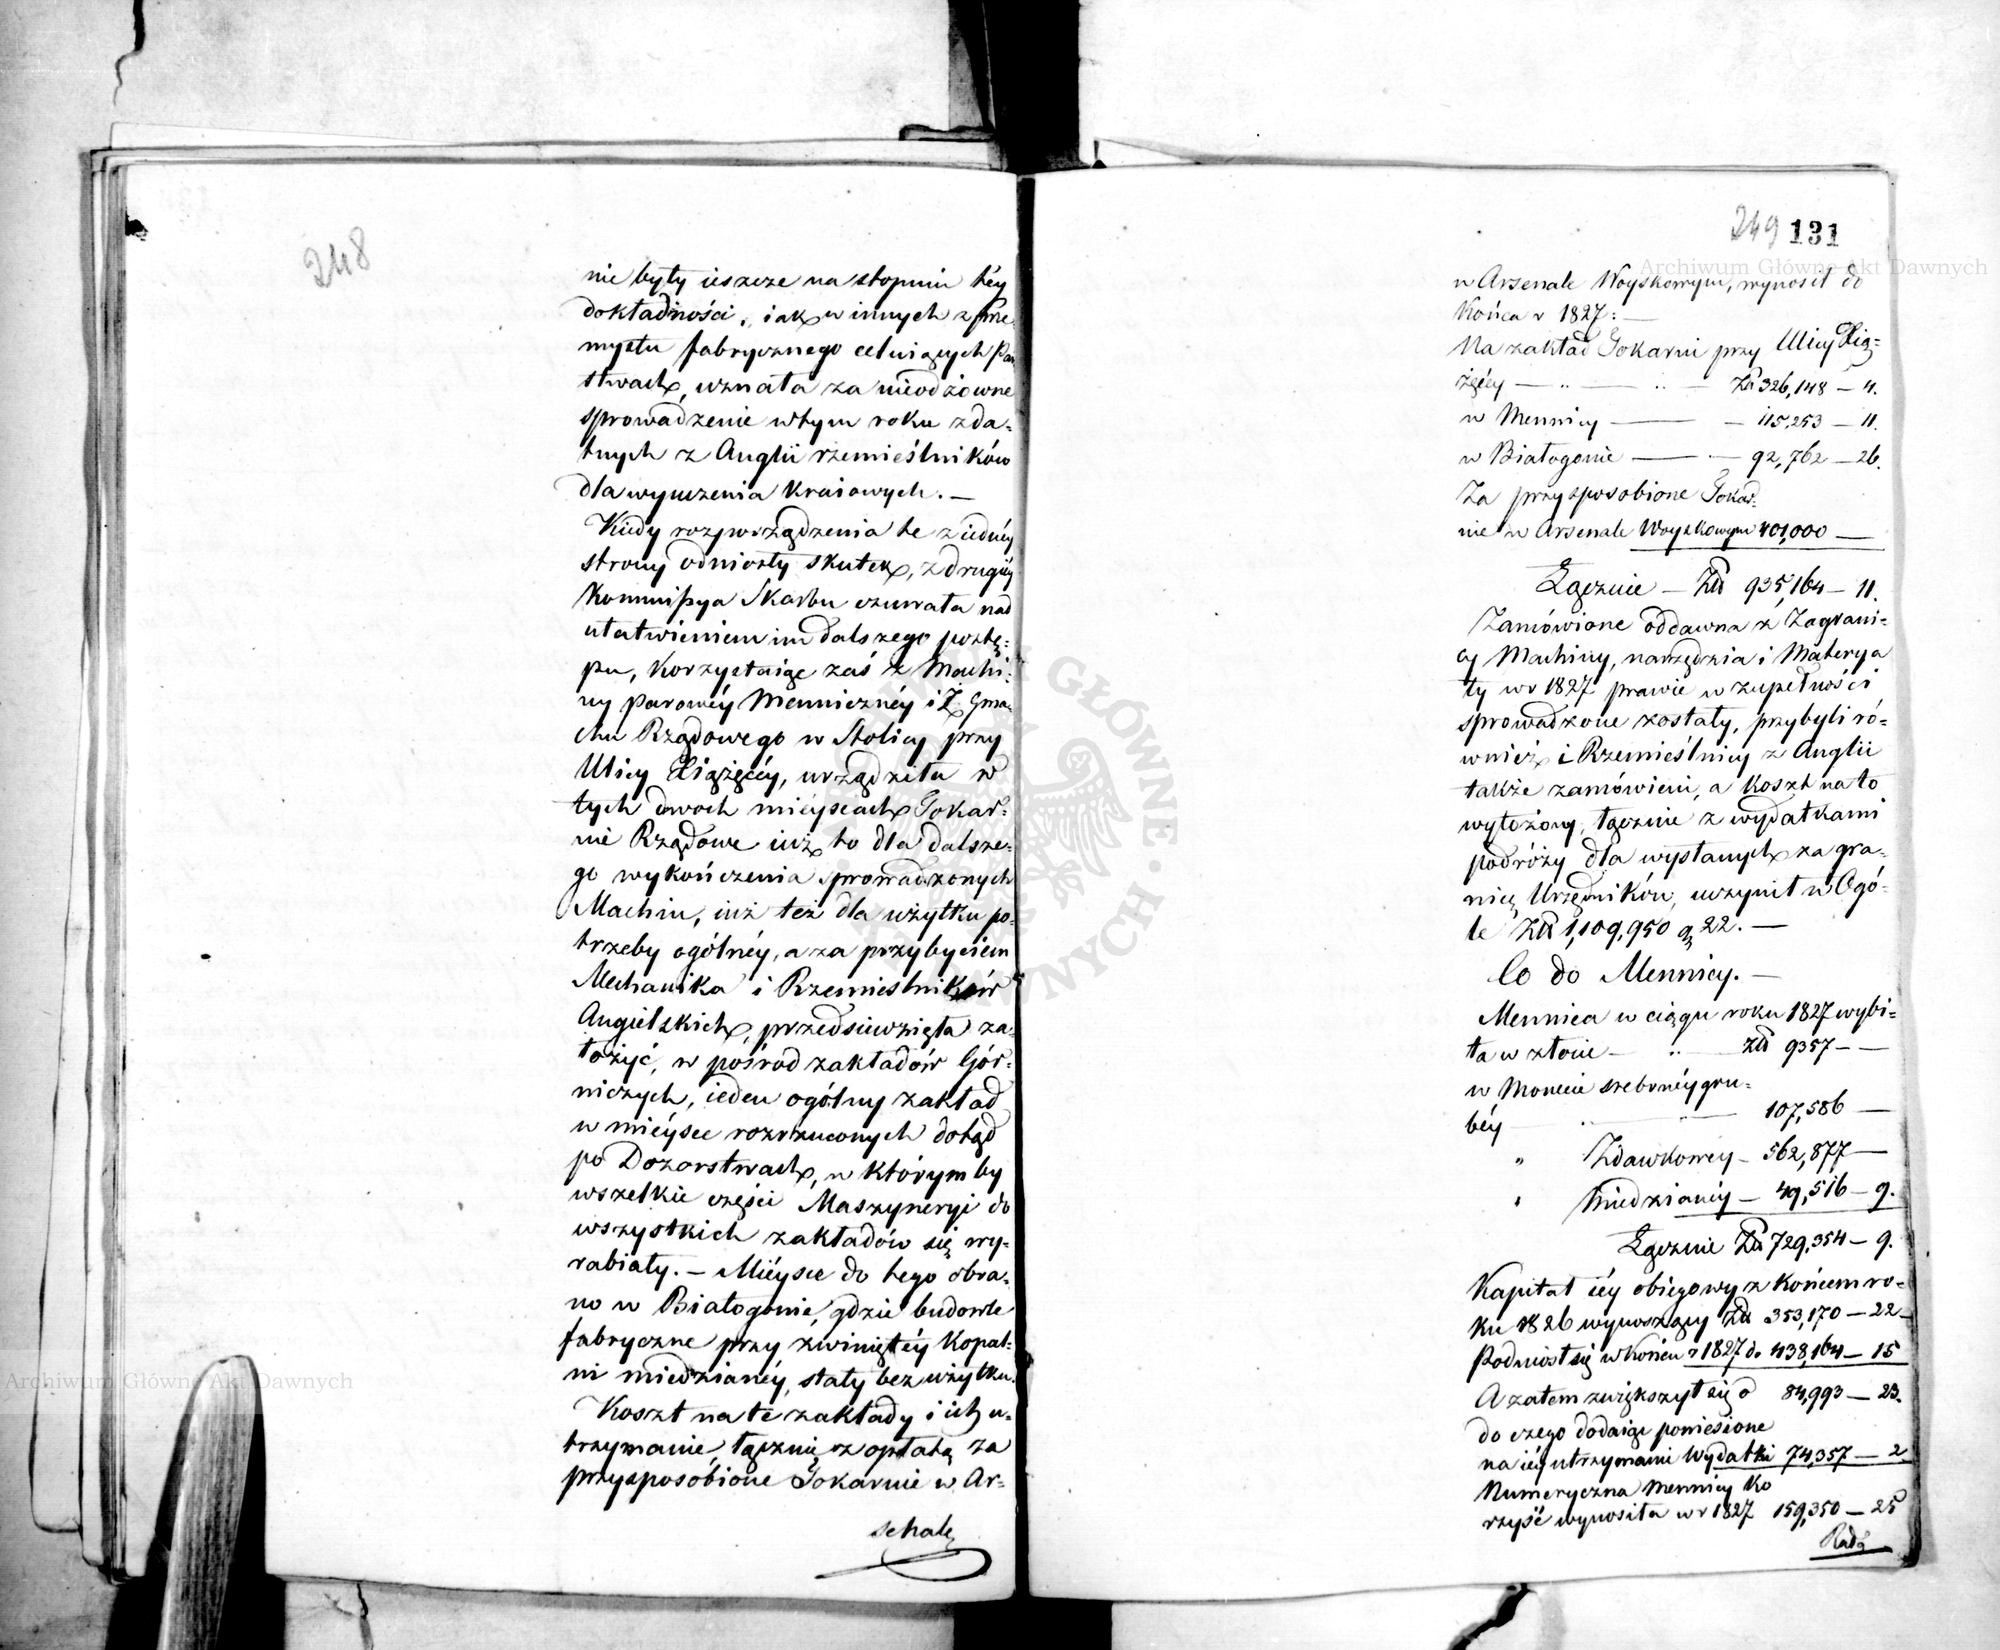 248
nie były ieszcze na stopniu téy
dokładności, iak w innych z prze-
mysłu fabrycznego celuiących Pań
stwach, uznała za nieodżowne
sprowadzenie w tym roku zda-
tnych z Anglii rzemieślników
dla wyuczenia kraiowych. —
Kiedy rozporządzenia te z iednéy
strony odniosły skutek, z drugiéy
Kommissya Skarbu czuwała nad
ułatwieniem im dalszego postę-
pu, korzystaiąc zaś z Machi-
ny parowéy Mennicznéy i Z. Gma-
chu Rządowego w Stolicy przy
Ulicy Xiążęcéy, urządziła w
tych dwoch mieyscach Tokar-
nie Rządowe iuż to dla dalsze-
go wykończenia sprowadzonych
Machin, iuż też dla użytku po-
trzeby ogólnéy, a za przybyciem
Mechanika i Rzemieslników
Angielskich, przedsiewzięła za-
łożyć, w pośrod zakładów Gór-
niczych, ieden ogólny zakład
w miéysce rozrzuconych dotąd
po Dozorstwach, w którym by
wszelkie części Maszyneryi do
wszystkich zakładów się wy-
rabiały. — Miéysce do tego obra-
no w Białogonie, gdzie budowle
fabryczne przy zwiniętéy Kopal-
ni miedzianéy, stały bez użytku.
Koszt na te zakłady i ich u-
trzymanie, łącznie z opłatą za
przysposobione Tokarnie w Ar-
senale
249 131
w Arsenale Woyskowym, wynosił do
Końca r 1827: —
Na zakład Tokarni przy Ulicy Xią-
żęcéy — „ — „ — Złt 326,148 — 4.
w Mennicy — — 115,253 — 11.
w Białogonie — — 92,762 — 26.
Za przysposobione Tokar-
nie w Arsenale Woyskowym 401,000 —
Łącznie — Złt 935,164 — 11.
Zamówione oddawna z Zagrani-
cy Machiny, narzędzia i Materya
ły w r 1827 prawie w zupełności
sprowadzone zostały, przybyli ró-
wnież i Rzemieślnicy z Anglii
także zamówieni, a koszt na to
wyłożony, łącznie z wydatkami
podróży dla wysłanych za gra-
nicę Urzędników, uczynił w Ogó-
le Złt 1,109,950 g 22. —
Co do Mennicy. —
Mennica w ciągu roku 1827 wybi-
ła w złocie — „ — Złt 9357 — —
w Monecie srebrnéy gru-
béy — 107,586 —
„ Zdawkowey — 562,877 —
„ Miedzianéy — 49,516 — 9.
Łącznie Złt 729,354 — 9.
Kapitał iéy obiegowy z Końcem ro-
ku 1826 wynoszący Złt 353,170 — 22 —
Podniosł się w końcu r 1827 do 438,164 — 15
A zatem zwiększył się o 84,993 — 23.
do czego dodaiąc poniesione
na iéy utrzymanie Wydatki 74,357 — 2.
Numeryczna Mennicy Ko
rzyść wynosiła w r 1827 159,350 — 25
Archiwum Główne Akt Dawnych
Archiwum Główne Akt Dawnych